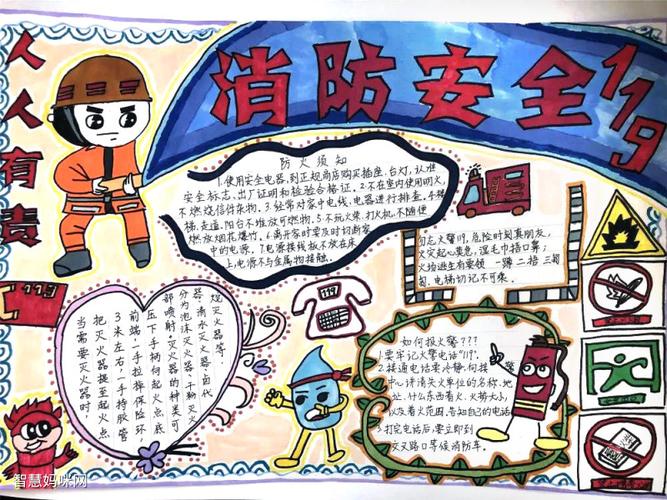 消防安全119
人人有责
防火须知
1.使用安全电器,到正规商店购买插座,台灯,认准
安全标志、出厂证明和检验合格证。2.不在室内使用明火,
不燃烧信件杂物。3.经常对家中电线,电器进行排查。4.楼
梯、走道,阳台不堆放可燃物。5.不玩火柴、打火机,不随便
燃放烟花爆竹。6.离开家时要及时切断家
中的电源。7.电源接线板不放在床
上,电源不与金属物接触。
勿忘火警119,危险时刻真朋友,
火灾起心莫急,湿毛巾捂口鼻;
火场逃生有要领,一蹲二捂三匍
匐,电梯切记不可乘。
119
119
当需要灭火器时,
把灭火器提至起火点
3米左右,一手持胶管
前端,一手拉掉保险环,
压下手柄向起火点底
部喷射。灭火器的种类可
分为泡沫灭火器、干粉灭火
器、清水灭火器、卤代
烷灭火器等.
如何报火警???
1.要牢记火警电话"119".
2.接通电话要冷静,向接
中心讲清失火单位的名称、地
址、什么东西着火、火势大小,
以及着火范围,告知自己的电话
3.打完电话后,要立即到
交叉路口等候消防车。
智慧妈咪网